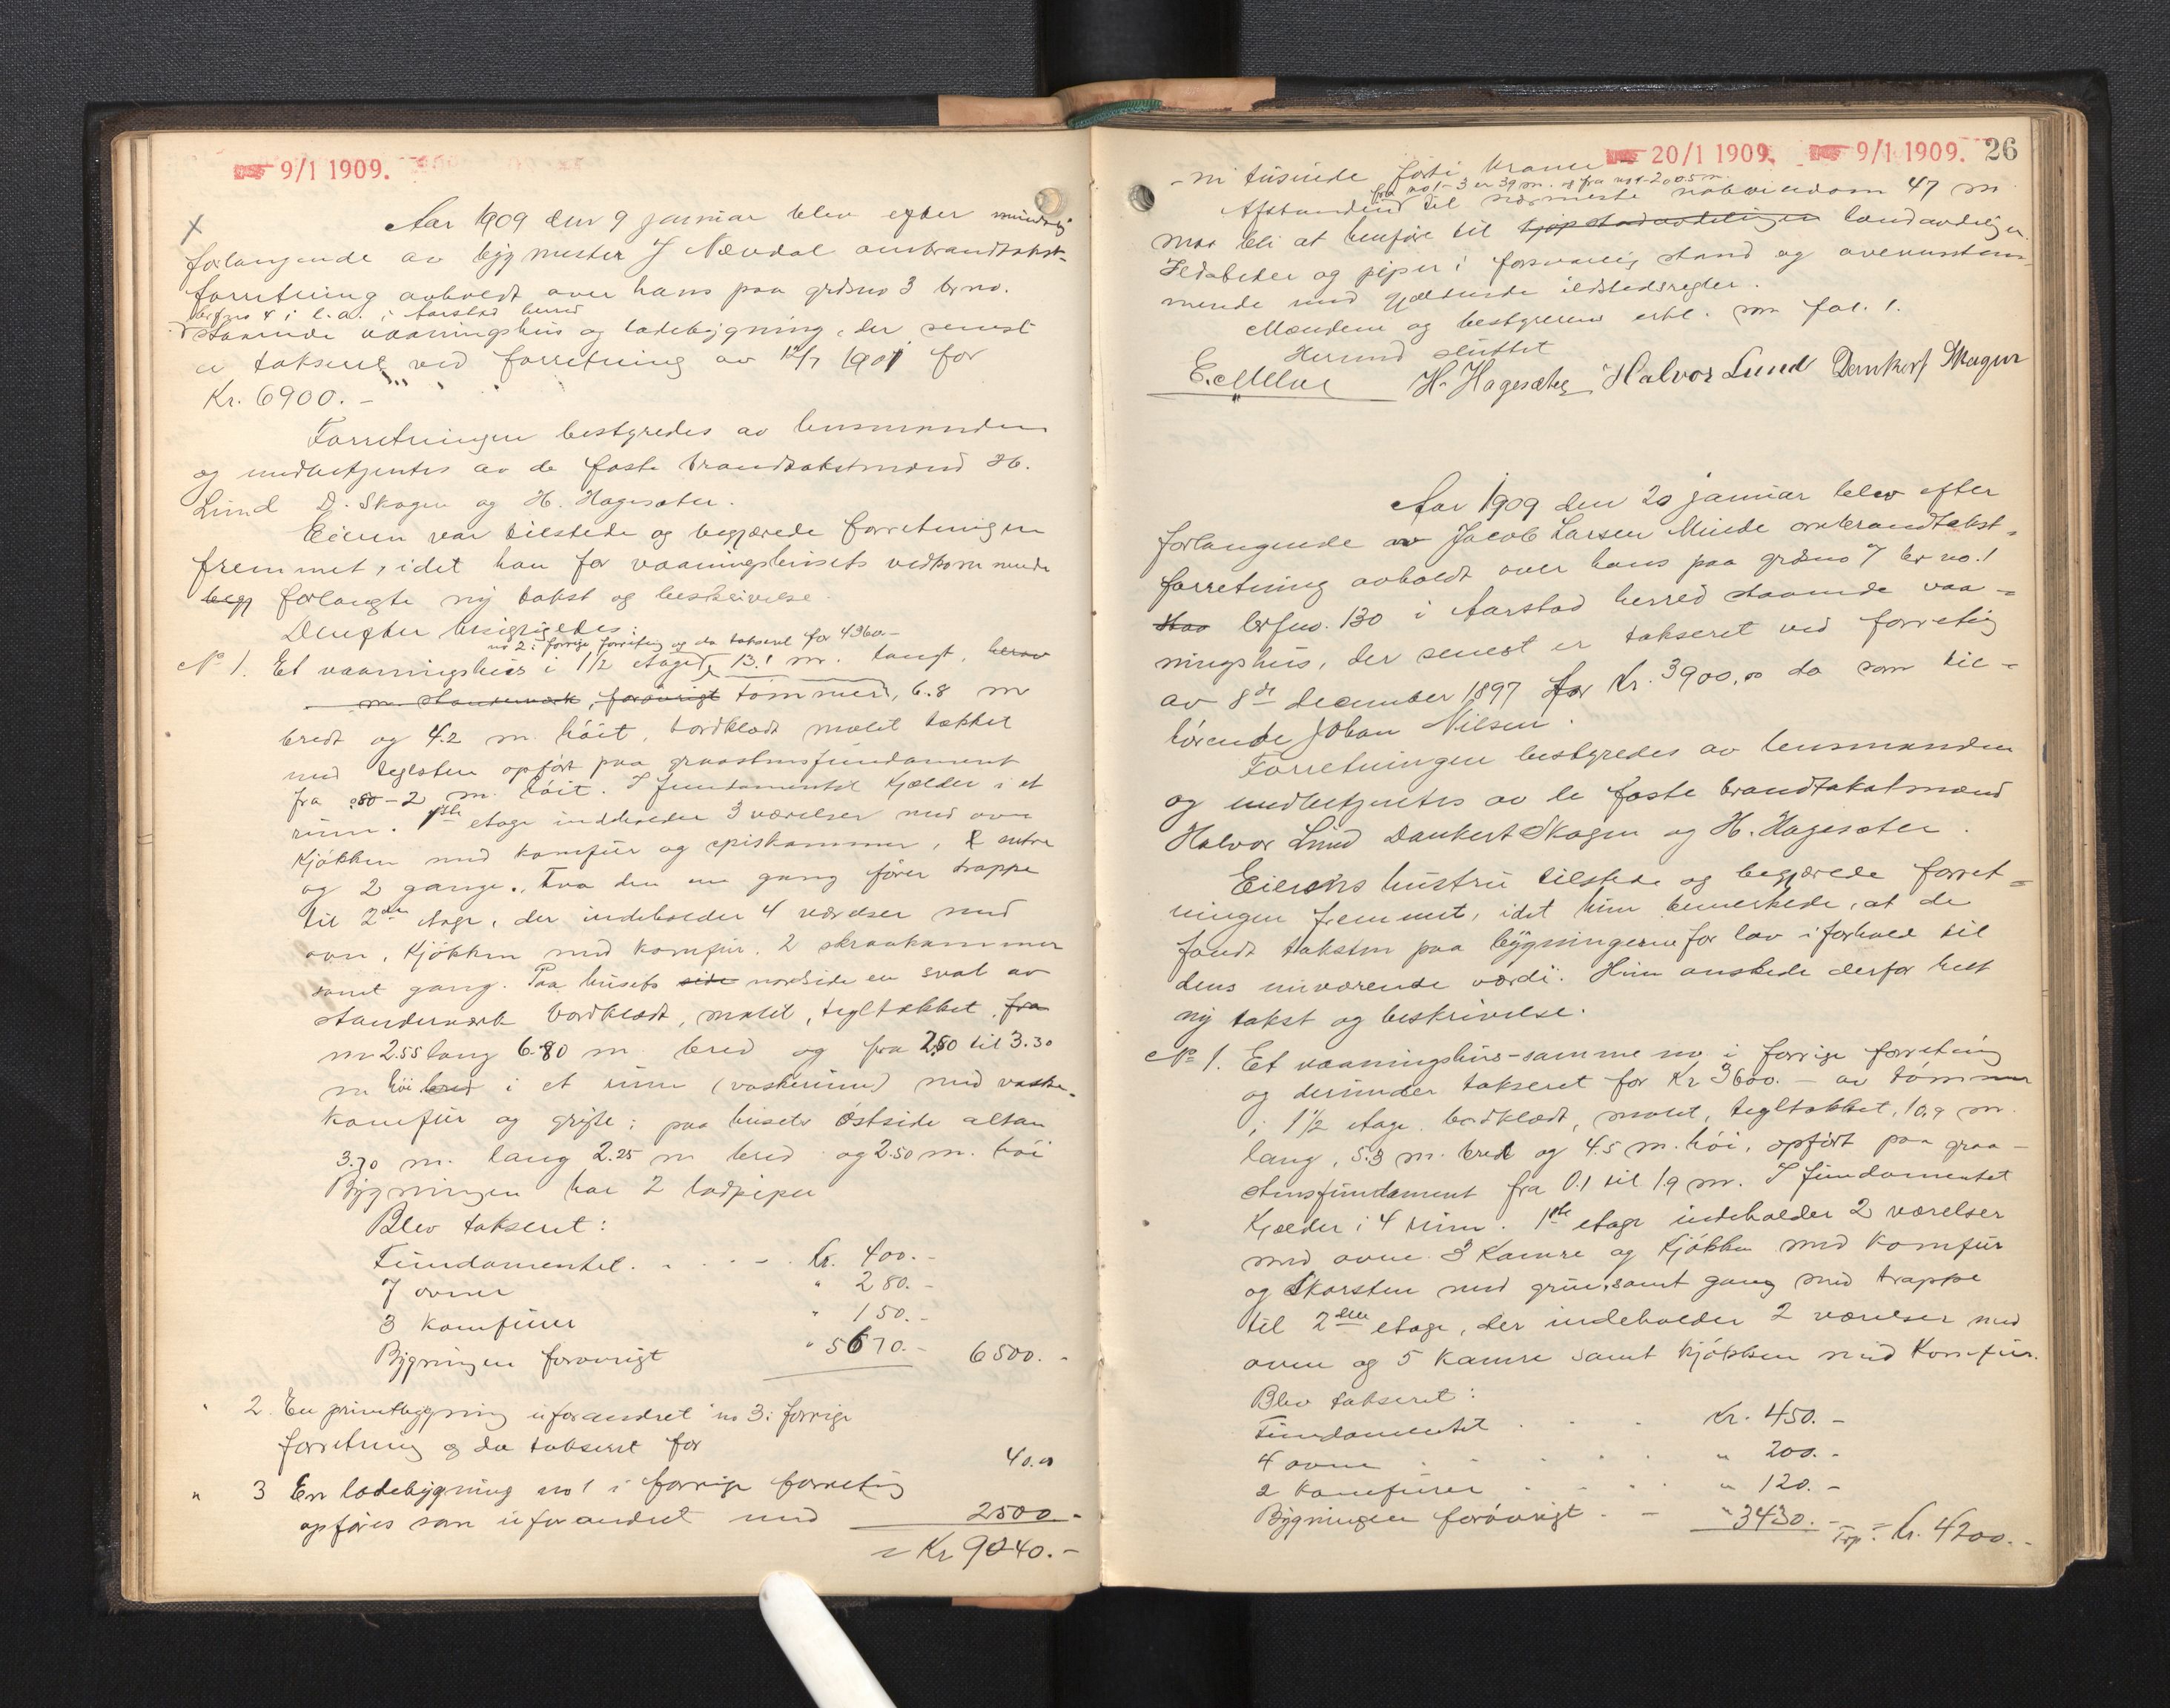 9/1 1909.
Aar 1909 den 9 januar blev efter mündtlig
forlangende av bygmester J Nævdal ombrandtakst-
forretning avholdt over hans paa grdsno 3 brno.
brfno 4 i l.a. i Aarstad herred
staaende vaaningshus og ladebygning, der senest
er takseret ved forretning av 12/7 1901 for
Kr. 6900.-
Forretningen bestyredes av lensmanden
og medbetjentes av de faste brandtakstmænd H.
Lund D. Skagen og H. Hagesæter.
Eieren var tilstede og begjærede forretningen
fremmet, idet han for vaaningshusets vedkommende
begj forlangte ny takst og beskrivelse.
Derefter besigtigedes:
no 2 i forrige forretning og da takseret for 4360.-
No 1. Et vaaningshus i 1 1/2 etage, 13.1 m. langt, herav
m. standerværk, forøvrigt tømmer, 6.8 m
bredt og 4.2 m. høit, bordklædt malet tækket
med teglsten opført paa graastensfundament
fra 0.80-2 m. høit. I fundamentet kjælder i et
rum. 1ste etage indeholder 3 værelser med ovn
kjøkken med komfür og spiskammer, 1 entre
og 2 gange. Fra den ene gang fører trappe
til 2den etage, der indeholder 4 værelser med
ovn, kjøkken med komfür, 2 skraakammer
samt gang. Paa husets side nordside en sval av
standerværk bordklædt, malet, tegltækket, fra
m 2.55 lang 6.80 m bred og fra 2.50 til 3.30
m høi bred i et rum (vaskerum) med vaske-
komfür og gryte; paa husets østside altan
3.70 m. lang 2.25 m bred og 2.50 m. høi
Bygningen har 2 lodpiper
Blev takseret:
Fundamentet . . . . Kr. 400.-
7 ovner " 280.-
3 komfürer " 150.-
Bygningen forøvrigt " 5670.- 6500.-
" 2. En privetbygning uforandret no 3 i forrige
forretning og da takseret for 40.00
" 3 En ladebygning no 1 i forrige forretning
opføres som uforandret med 2500.-
= Kr 9040.-
20/1 1909. 9/1 1909. 26
- ni tusinde førti kroner
fra no 1-3 er 39 m. og fra no 1-2 0.5 m.
Afstanden til nærmeste naboeiendom 47 m
maa bli at henføre til kjøpstadavdelingen landavdelingen
Ildsteder og piper i forsvarlig stand og overensstem-
mende med gjældende ildstedsregler.
Mændene og bestyreren erhl. som fol. 1.
Herved sluttet
H. Hagesæter Halvor Lund Dankert Skagen
Aar 1909 den 20 januar blev efter
forlangende av Jacob Larsen Minde ombrandtakst-
forretning avholdt over hans paa grdsno 7 br no. 1
staa brfno. 130 i Aarstad herred staaende vaa-
ningshus, der senest er takseret ved forretnig
av 8de december 1897 for Kr. 3900,00 da som til-
hørende Johan Nilsen.
Forretningen bestyredes av lensmanden
og medbetjentes av de faste brandtakstmænd
Halvor Lund Dankert Skagen og H. Hagesæter.
Eierens hustru tilstede og begjærede forret-
ningen fremmet, idet hun bemerkede, at de
fandt taksten paa bygningerne for lav i forhold til
dens nuværende værdi. Hun ønskede derfor helt
ny takst og beskrivelse.
No 1. Et vaaningshus - samme no i forrige forretning
og derunder takseret for Kr 3600.- av tømmer
i 1 1/2 etage, bordklædt, malet, tegltækket, 10.9 m.
lang, 5.3 m. bred og 4.5 m. høi, opført paa graa-
stensfundament fra 0.1 til 1.9 m. I fundamentet
kjælder i 4 rum. 1ste etage indeholder 2 værelser
med ovne 3 kamre og kjøkken med komfür
og skorsten med grue, samt gang med trappe
til 2den etage, der indeholder 2 værelser med
ovne og 5 kamre samt kjøkken med komfür.
Blev takseret:
Fundamentet . . . Kr. 450.-
4 ovne . . . . " 200.-
2 komfürer . . . . " 120.-
Bygningen forøvrigt . - " 3430.- = Kr. 4200.-